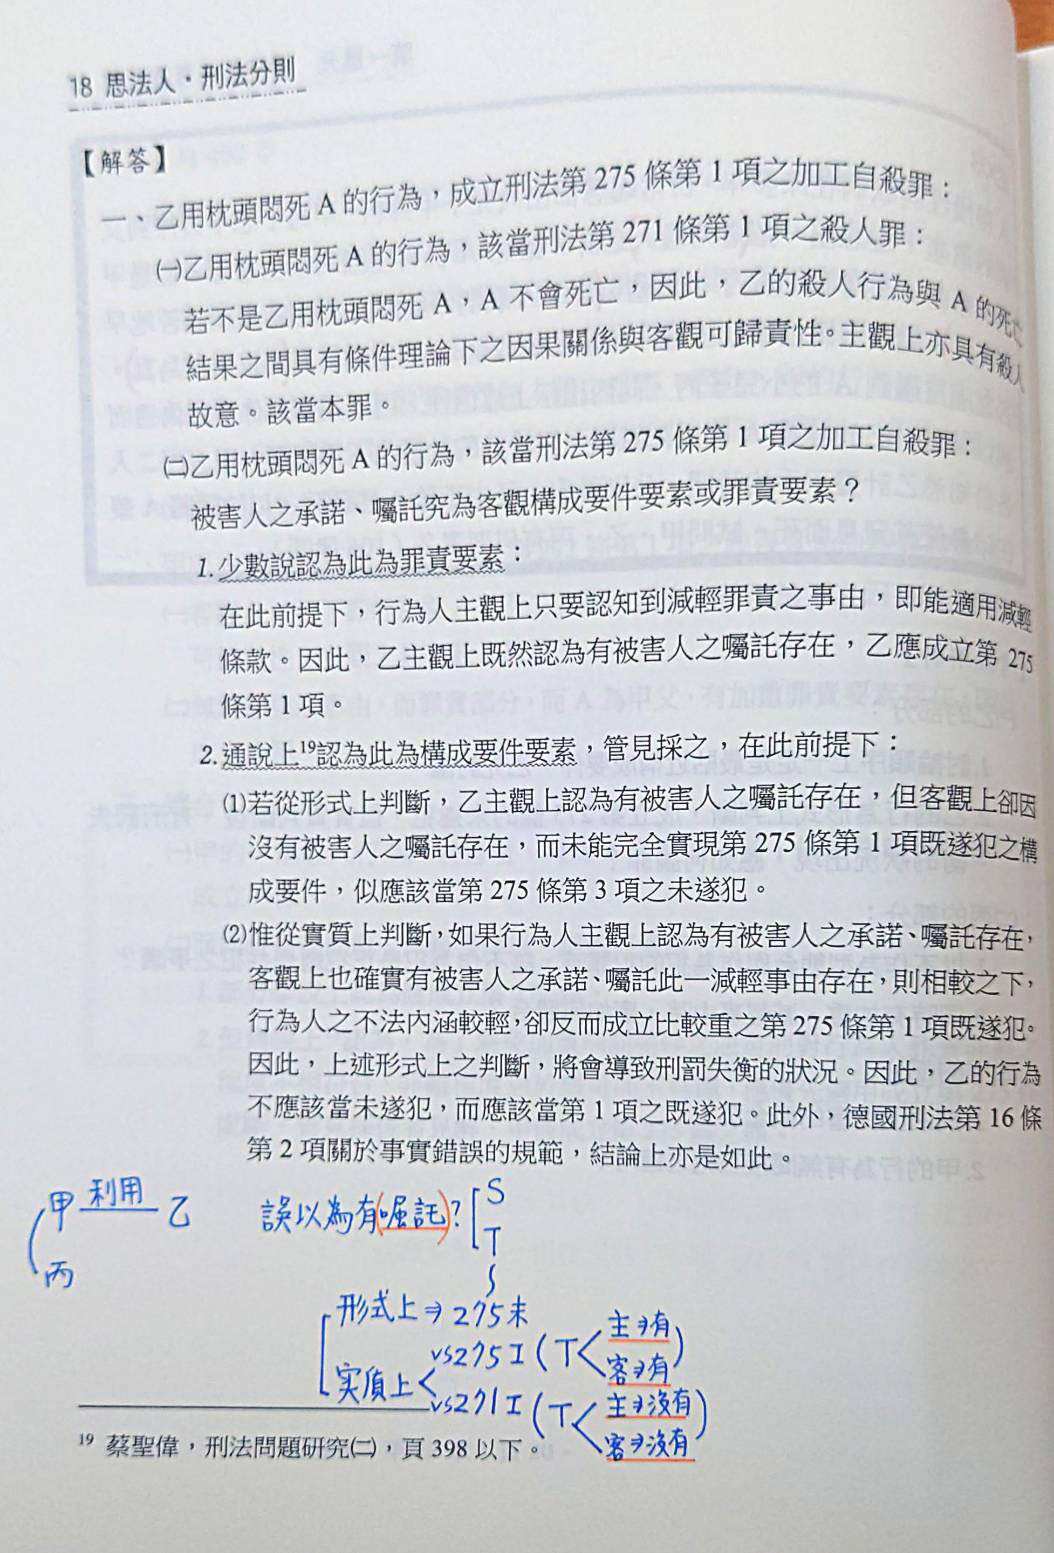 18 思法人・刑法分則
【解答】
一、乙用枕頭悶死 A 的行為，成立刑法第 275 條第 1 項之加工自殺罪：
㈠乙用枕頭悶死 A 的行為，該當刑法第 271 條第 1 項之殺人罪：
若不是乙用枕頭悶死 A，A 不會死亡，因此，乙的殺人行為與 A 的死亡
結果之間具有條件理論下之因果關係與客觀可歸責性。主觀上亦具有殺人
故意。該當本罪。
㈡乙用枕頭悶死 A 的行為，該當刑法第 275 條第 1 項之加工自殺罪：
被害人之承諾、囑託究為客觀構成要件要素或罪責要素？
1.少數說認為此為罪責要素：
在此前提下，行為人主觀上只要認知到減輕罪責之事由，即能適用減輕
條款。因此，乙主觀上既然認為有被害人之囑託存在，乙應成立第 275
條第 1 項。
2.通說上19認為此為構成要件要素，管見採之，在此前提下：
⑴若從形式上判斷，乙主觀上認為有被害人之囑託存在，但客觀上卻因
沒有被害人之囑託存在，而未能完全實現第 275 條第 1 項既遂犯之構
成要件，似應該當第 275 條第 3 項之未遂犯。
⑵惟從實質上判斷，如果行為人主觀上認為有被害人之承諾、囑託存在，
客觀上也確實有被害人之承諾、囑託此一減輕事由存在，則相較之下，
行為人之不法內涵較輕，卻反而成立比較重之第 275 條第 1 項既遂犯。
因此，上述形式上之判斷，將會導致刑罰失衡的狀況。因此，乙的行為
不應該當未遂犯，而應該當第 1 項之既遂犯。此外，德國刑法第 16 條
第 2 項關於事實錯誤的規範，結論上亦是如此。
甲 利用 乙
丙
誤以為有(囑託)? S
T
形式上⇒275未
实質上 vs275I (T 主⇒有
客⇒有)
vs271I (T 主⇒沒有
客⇒沒有)
19 蔡聖偉，刑法問題研究㈡，頁 398 以下。